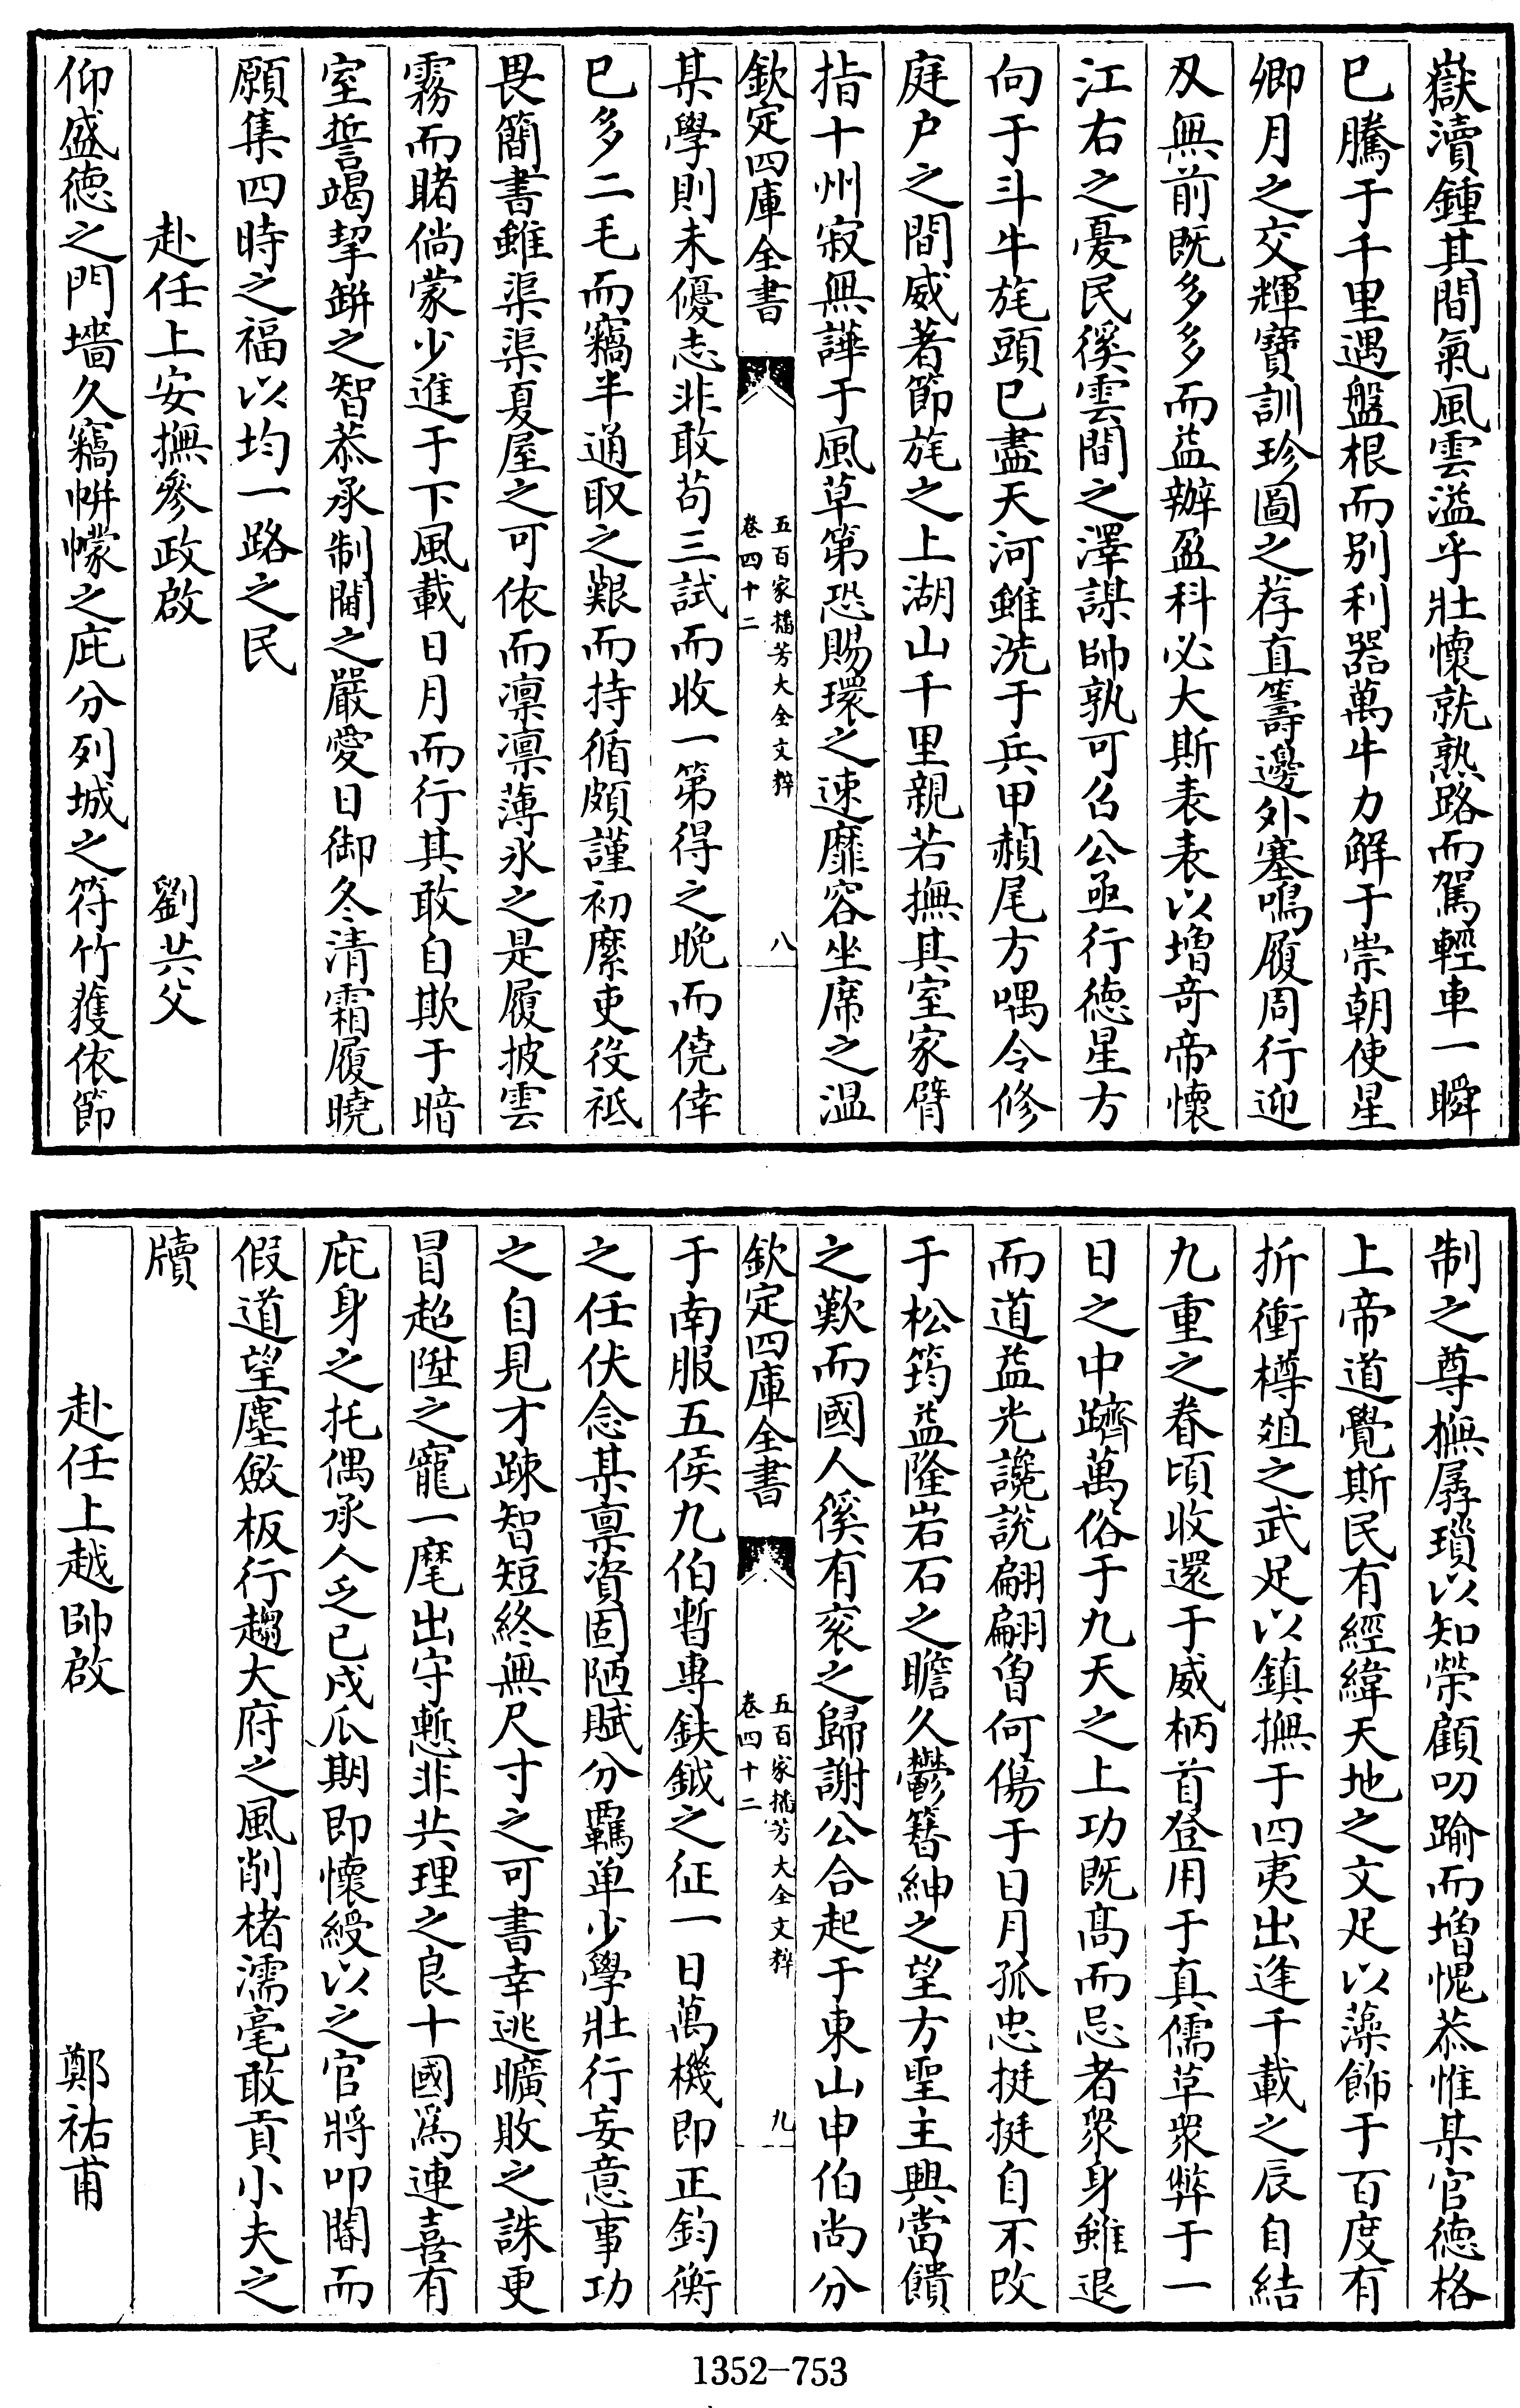 嶽瀆鍾其間氣風雲溢乎壯懷就熟路而駕輕車一瞬
已騰于千里遇盤根而别利器萬牛力解于崇朝使星
卿月之交輝寶訓珍圖之荐直籌邊外塞鳴履周行迎
刄無前既多多而益辦盈科必大斯表表以增竒帝懷
江右之憂民徯雲間之澤謀帥孰可佋公亟行徳星方
向于斗牛旄頭已盡天河雖洗于兵甲赬尾方喁令修
庭户之間威著節旄之上湖山千里親若撫其室家臂
指十州寂無譁于風草第恐賜環之速靡容坐席之温
欽定四庫全書
五百家播芳大全文粹
卷四十二
八
某學則未優志非敢苟三試而收一第得之晚而僥倖
已多二毛而竊半通取之艱而持循頗謹初縻吏役祗
畏簡書雖渠渠夏屋之可依而凛凛薄氷之是履披雲
霧而睹倘蒙少進于下風載日月而行其敢自欺于暗
室誓竭挈缾之智恭承制閫之嚴愛日御冬清霜履曉
願集四時之福以均一路之民
赴任上安撫參政啟
劉共父
仰盛徳之門墻久竊帲幪之庇分列城之符竹獲依節
制之尊撫孱瑣以知榮顧叨踰而增愧恭惟某官徳格
上帝道覺斯民有經緯天地之文足以藻飾于百度有
折衝樽爼之武足以鎮撫于四夷出逢千載之辰自結
九重之眷頃收還于威柄首登用于真儒草衆弊于一
日之中躋萬俗于九天之上功既髙而忌者衆身雖退
而道益光讒說翩翩曾何傷于日月孤忠挺挺自不改
于松筠益隆岩石之瞻久鬱簪紳之望方聖主興當饋
之歎而國人徯有衮之歸謝公合起于東山申伯尚分
欽定四庫全書
五百家播芳大全文粹
卷四十二
九
于南服五侯九伯暫專鈇鉞之征一日萬機即正鈞衡
之任伏念某禀資固陋賦分羈单少學壯行妄意事功
之自見才踈智短終無尺寸之可書幸逃曠敗之誅更
冒超陞之寵一麾出守慙非共理之良十國為連喜有
庇身之托偶承人乏已戍瓜期即懷綬以之官將叩閽而
假道望塵斂板行趨大府之風削楮濡毫敢貢小夫之
牘
赴任上越帥啟
鄭祐甫
1352-753